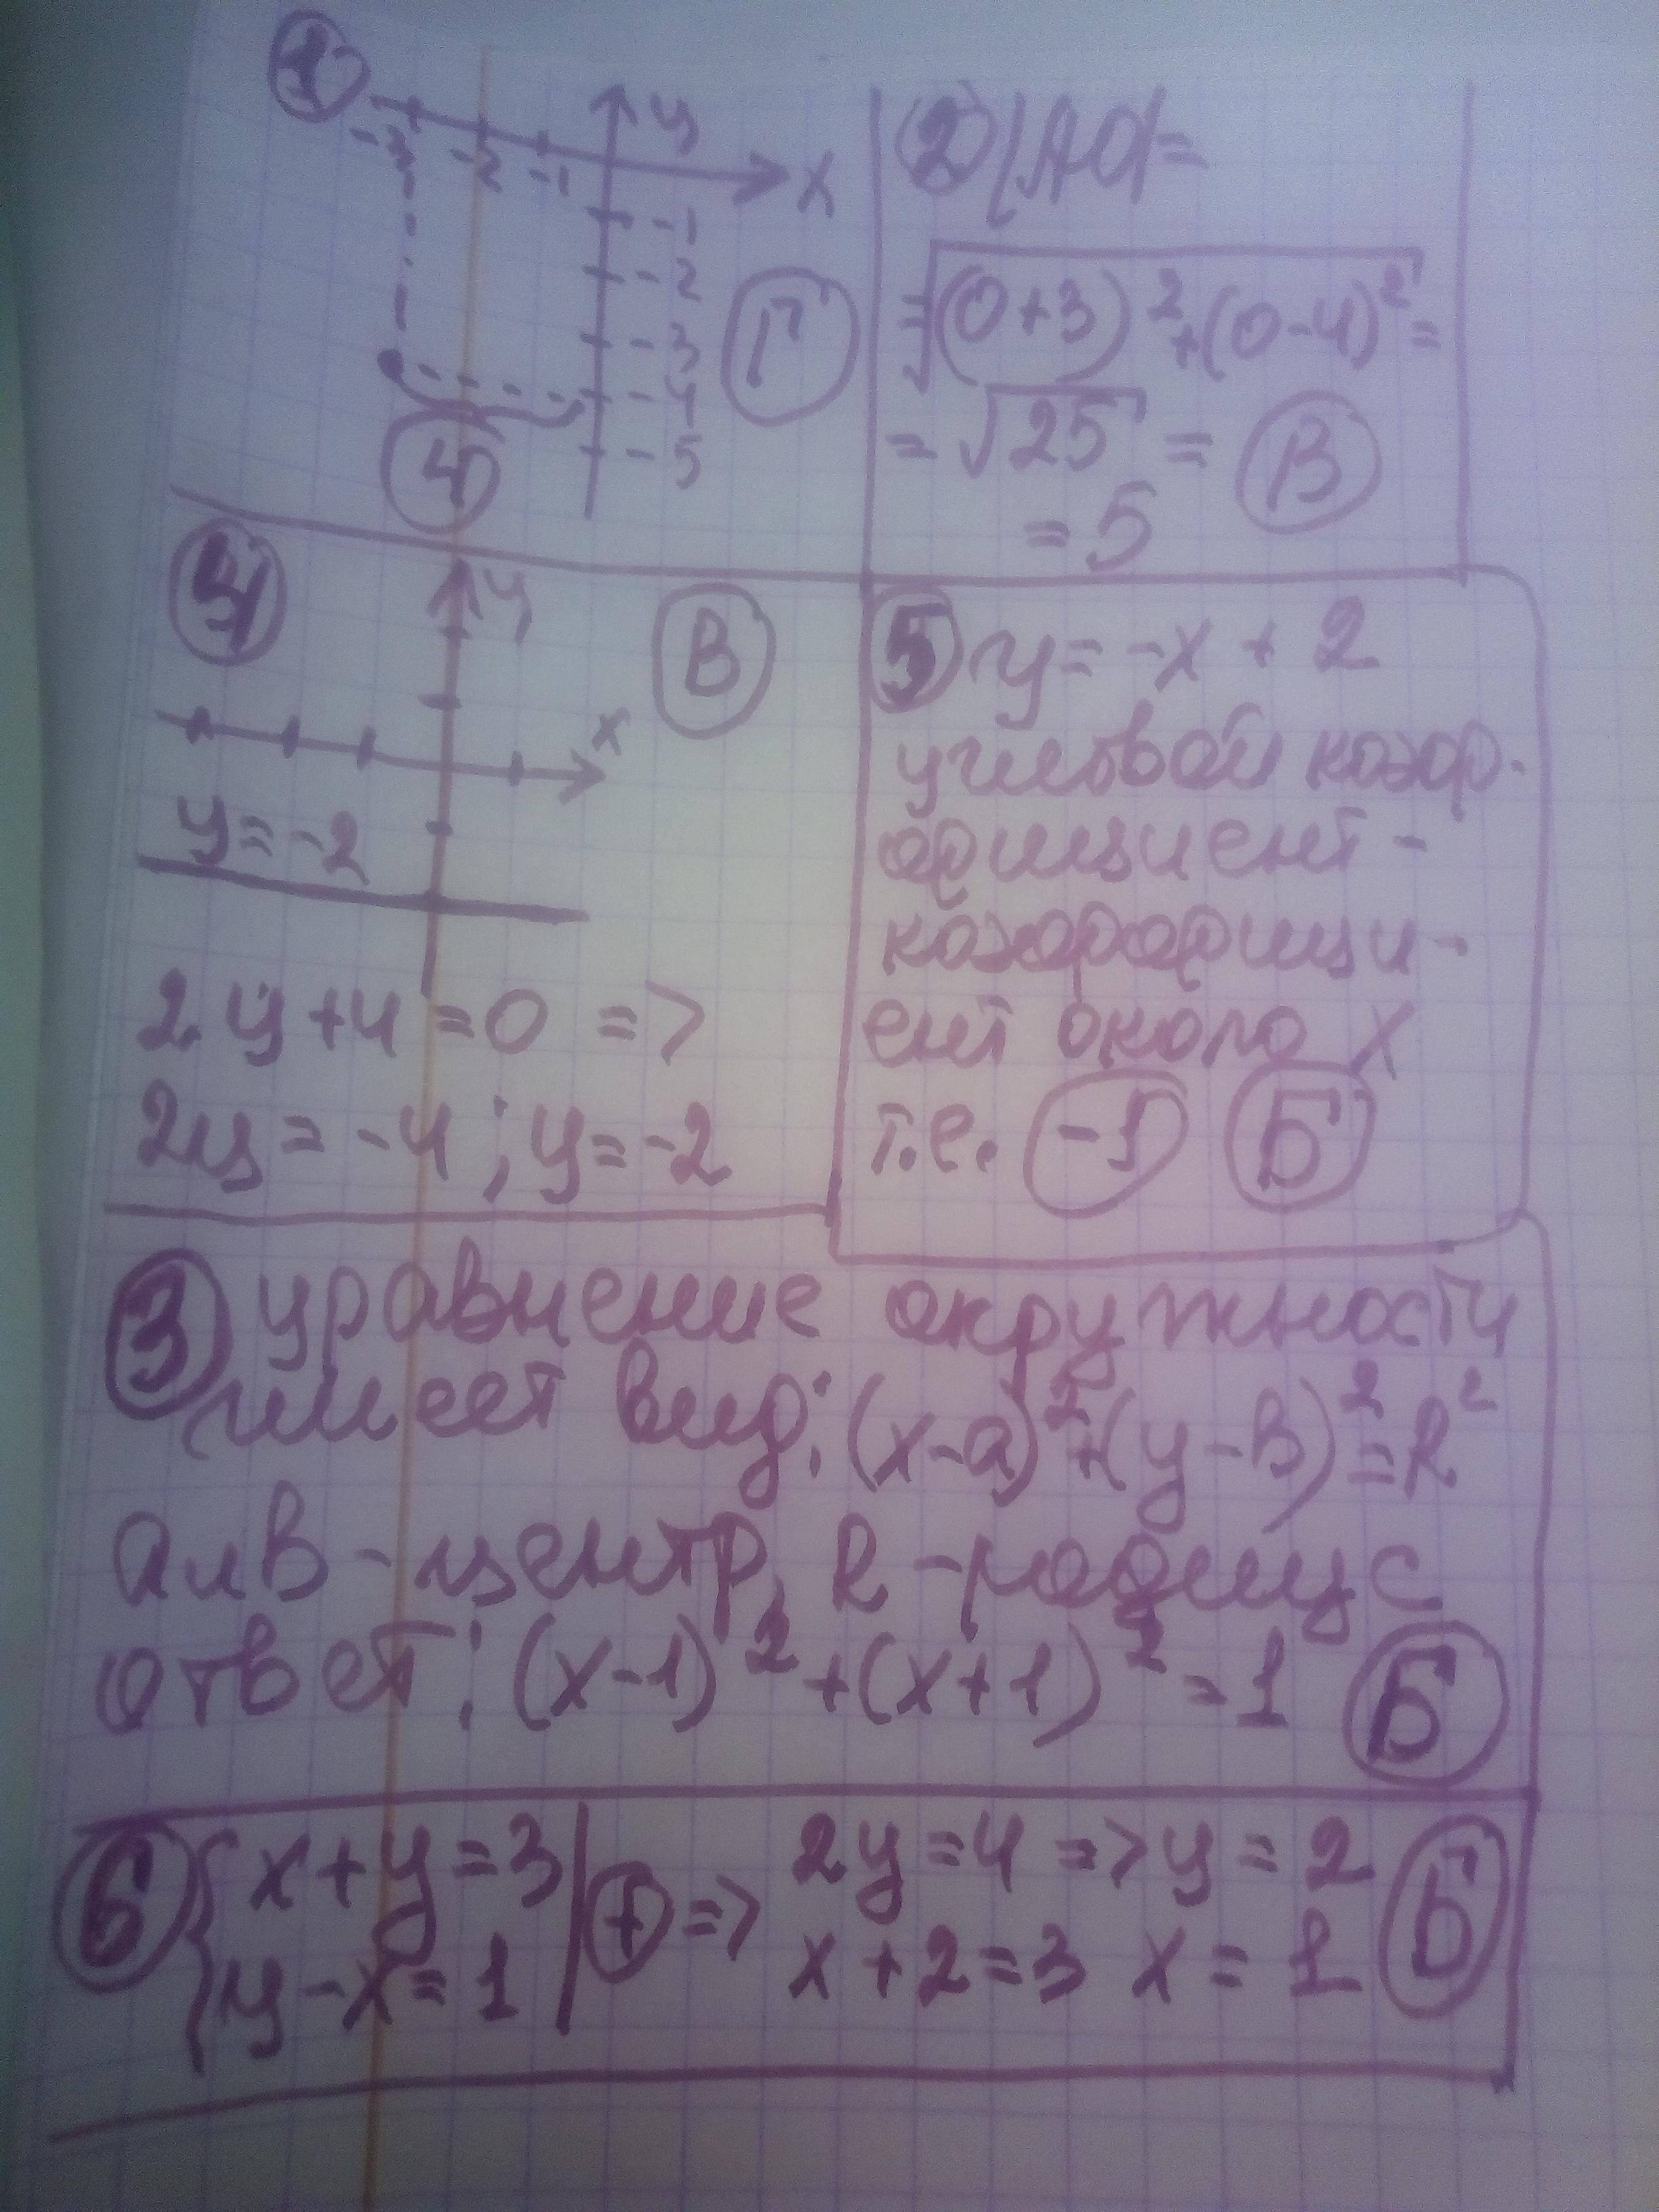 1
-3 -2 -1
y
x
-1
-2
-3
-4
-5
Г
4
2 |AO|=
=√(0+3)²+(0-4)²=
=√25 =
=5
В
4
y
x
В
y=-2
2y+4=0 =>
2y=-4; y=-2
5 y=-x+2
угловой коэф-
фициент -
коэффици-
ент около x
т.е. -1 Б
3 уравнение окружности
имеет вид: (x-a)²+(y-в)²=R²
a и в - центр, R - радиус
ответ: (x-1)²+(x+1)²=1 Б
6 { x+y=3 | + => 2y=4 => y=2
y-x=1 x+2=3 x=1 Б